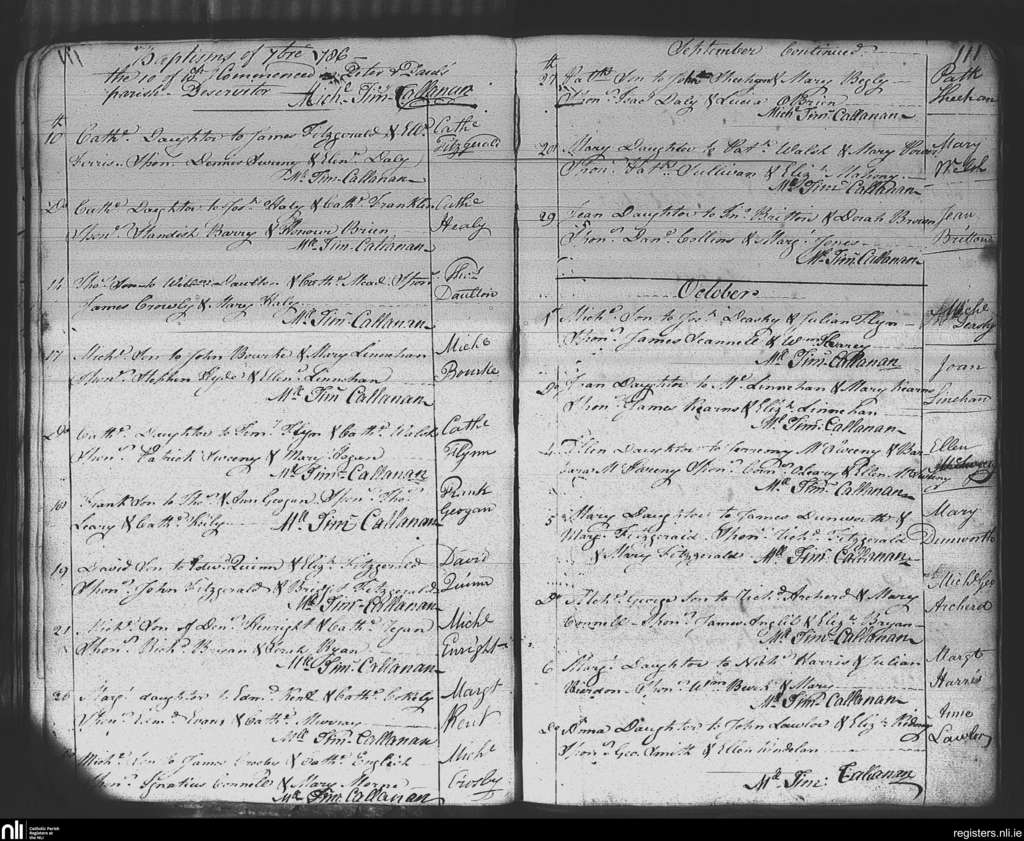 111
Baptisms of 7bre 1786
the 10 of Do Commenced Peter & Paul's
parish Deservitor Michl Timy Callanan
th
10 Cathe Daughter to James Fitzgerald & Elln
Ferris. Sponr Denis Sweeny & Elinr Daly
Ml Tim Callanan
Cathe
Fitzgerald
Do Cathe Daughter to Josh Haly & Cathe Franklin
Sponr Standish Barry & Honour Brien
Ml Tim Callanan
Cathe
Healy
14 Thos Son to Willm Daulton & Cathe Mead Sponr
James Crowly & Mary Haly
Ml Tim Callanan
Thos
Daulton
17 Michl Son to John Bourke & Mary Linnehan
Sponr Stephen Hyde & Ellen Linnehan
Ml Tim Callanan
Michl
Bourke
Do Cathe Daughter to Timy Flyn & Cathe Walsh
Sponr Patrick Sweeny & Mary Fagan
Ml Tim Callanan
Cathe
Flynn
18 Frank Son to Thos & Ann Geogan Sponr Thos
Leary & Cathe Reily Ml Tim Callanan
Frank
Geogan
19 David Son to Edwd Quinn & Elizh Fitzgerald
Sponr John Fitzgerald & Bridgt Fitzgerald
Ml Tim Callanan
David
Quinn
21 Michl Son of Denis Henright & Cathe
Sponr Richd Brian & Sarah Ryan
Ml Tim Callanan
Michl
Enright
26 Margt daughter to Edmd Kent & Cathe
Sponr Edmd Evans & Cathe Murray
Ml Tim Callanan
Margt
Kent
Michl Son to James Crosby & Cathe English
Sponr Ignatius Connell & Mary Horne
Ml Tim Callanan
Michl
Crosby
September Continued
111
th
27 Patk Son to John Sheehan & Mary Begly
Sponr Isac Daly & Lucia OBrien
Michl Tim Callanan
Patk
Sheehan
28 Mary Daughter to Patk Walsh & Mary Power
Sponr Patk Sullivan & Elizh Mahony
Ml Tim Callanan
Mary
Walsh
29 Jean Daughter to Jno Britton & Dorah Brown
Sponr Danl Collins & Margt Jones
Ml Tim Callanan
Jean
Britton
October
1 Michl Son to Josh Deasky & Julian Flyn
Sponr James Jeannett & Wm Harvey
Ml Tim Callanan
Michl
Do Joan Daughter to Ml Linnehan & Mary Kearns
Sponr James Kearns & Elizh Linnehan
Ml Tim Callanan
Joan
Linehan
4 Ellen Daughter to Jerremy McSweeny & Bar
bara McSweeny Sponr OLeary & Ellen McSweeny
Ml Tim Callanan
Ellen
McSweeny
5 Mary Daughter to James Dunworth &
Margt Fitzgerald Sponr Richd Fitzgerald
& Mary Fitzgerald Ml Tim Callanan
Mary
Dunworth
Do Michl George Son to Richd Archerd & Mary
Connell Sponr James English & Elizh Bryan
Ml Tim Callanan
Michl Geo
Archerd
6 Margt Daughter to Nichs Harris & Julian
Rierdon Sponr Wm Burk & Mary
Ml Tim Callanan
Margt
Harris
Do Anna Daughter to John Lawlor & Elizh
Sponr Geo Smith & Ellen
Ml Tim Callanan
Lawlor
nli
Catholic Parish
Registers at
the NLI
registers.nli.ie